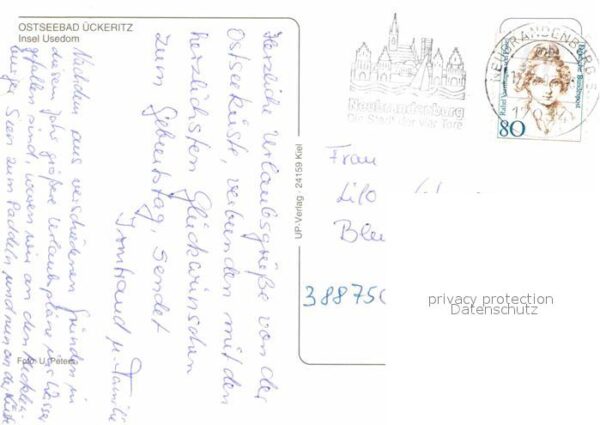 OSTSEEBAD ÜCKERITZ
Insel Usedom
Herzliche Urlaubsgrüße von der
Ostseeküste, verbunden mit den
herzlichsten Glückwünschen
zum Geburtstag, sendet
Irmtraud u. Familie
Nachdem aus verschiedenen Gründen in
diesem Jahr größere Urlaubspläne ins Wasser
gefallen sind, waren wir an den Mecklen-
burger Seen zum Paddeln und nun an der Küste
Foto: U. Peters
UP-Verlag · 24159 Kiel
Neubrandenburg
Die Stadt der vier Tore
NEUBRANDENBURG
Deutsche Bundespost
80
Frau
Lilo
388750
privacy protection
Datenschutz